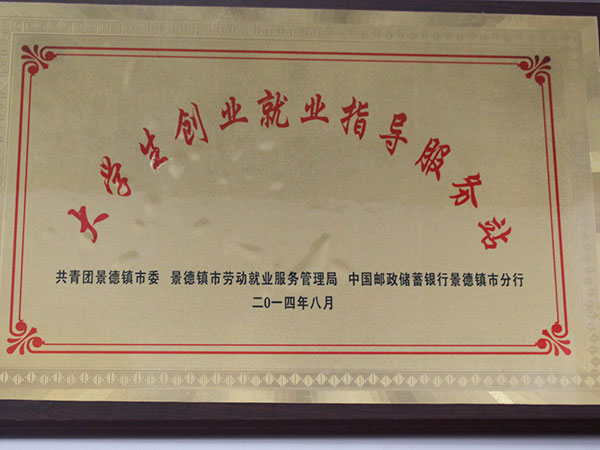 大学生创业就业指导服务站
共青团景德镇市委 景德镇市劳动就业服务管理局 中国邮政储蓄银行景德镇市分行
二0一四年八月